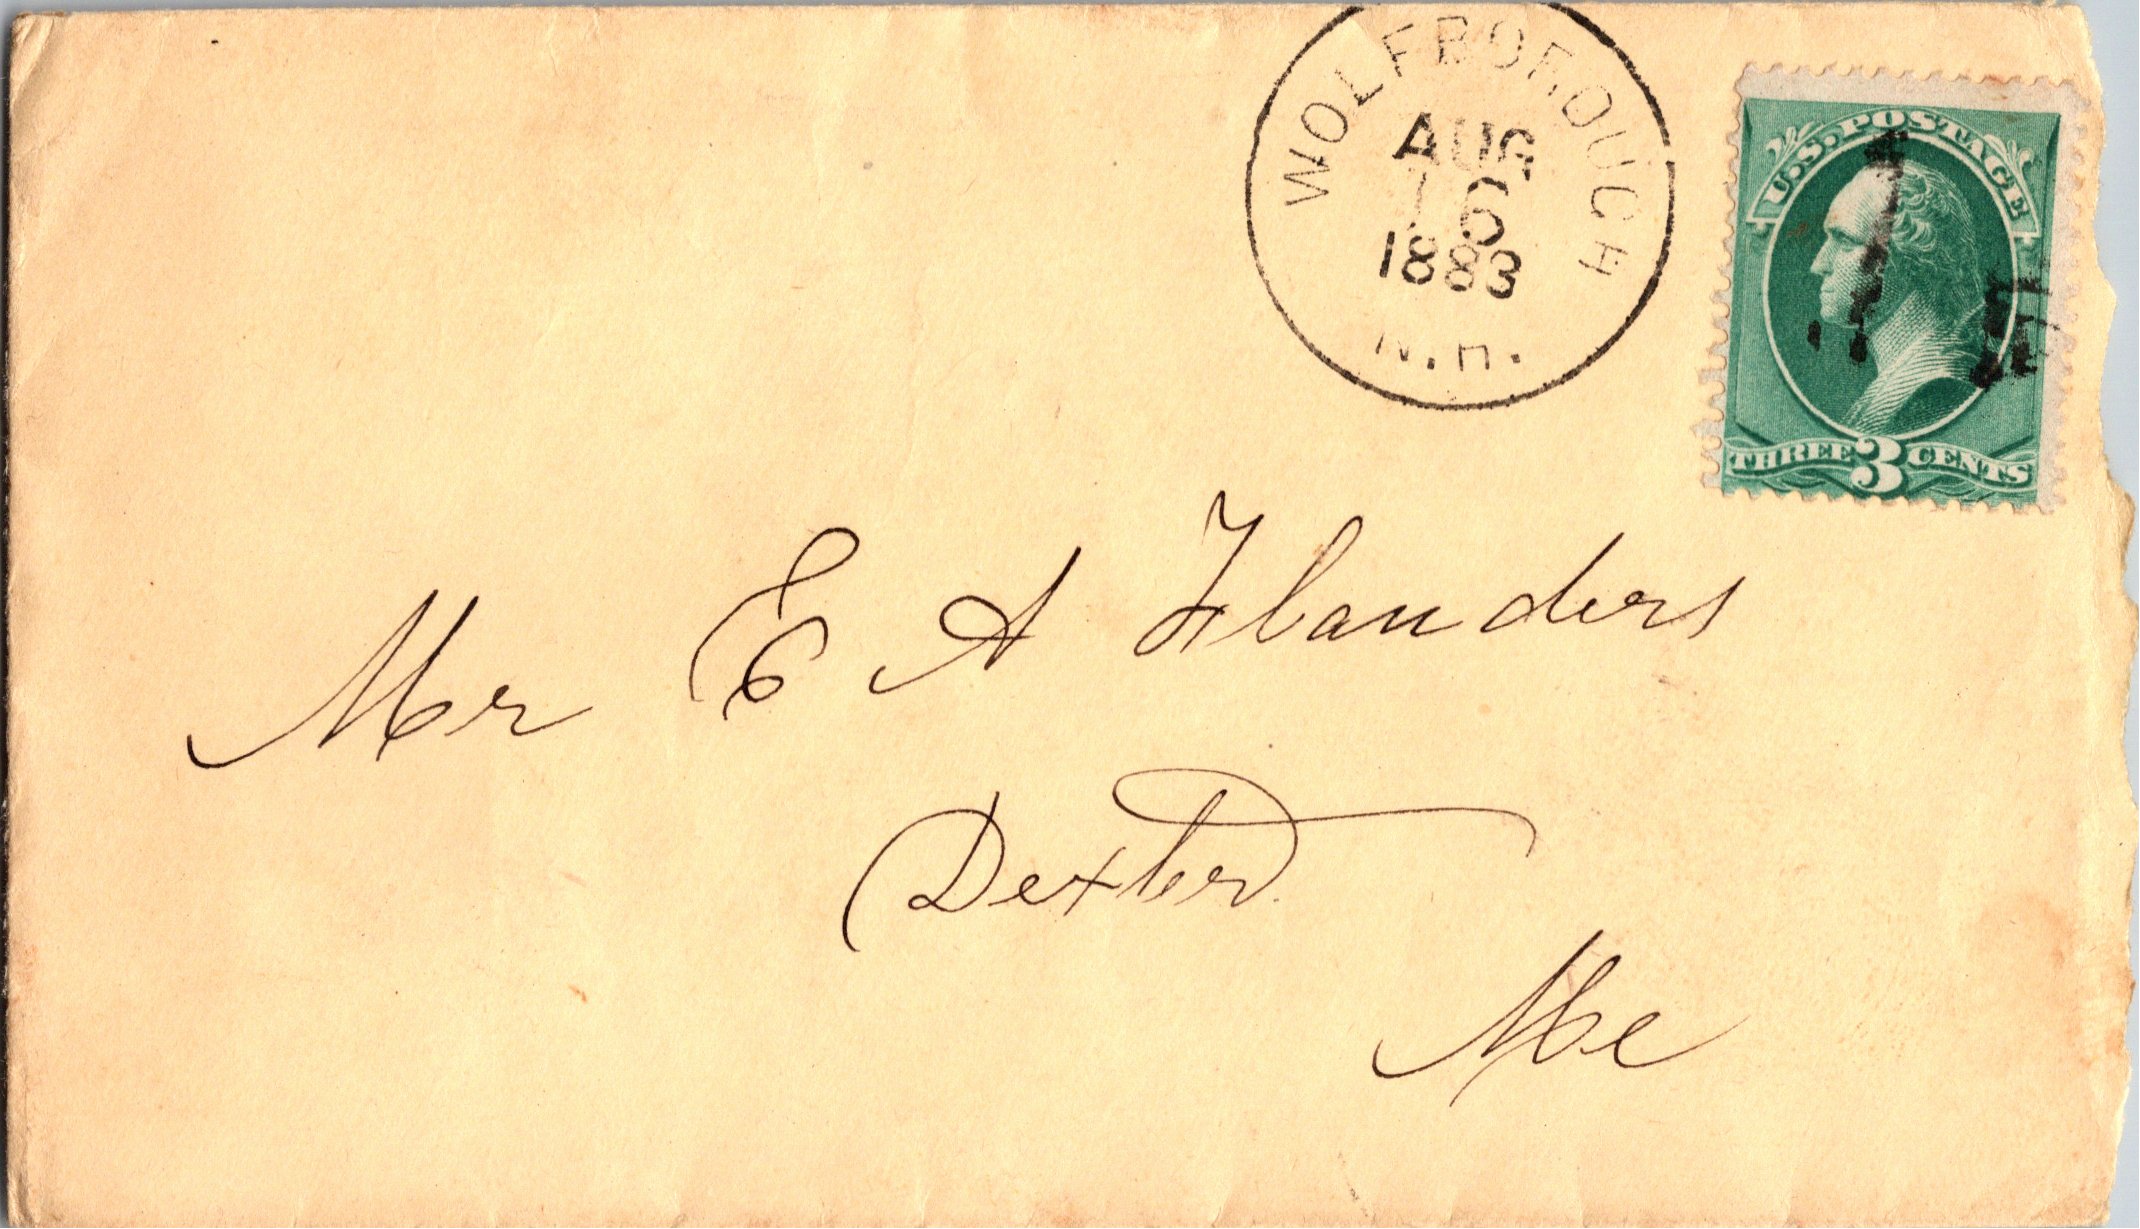 WOLFBOROUGH
AUG
16
1883
N.H.
U.S. POSTAGE
THREE 3 CENTS
Mr E A Flanders
Dexter
Me